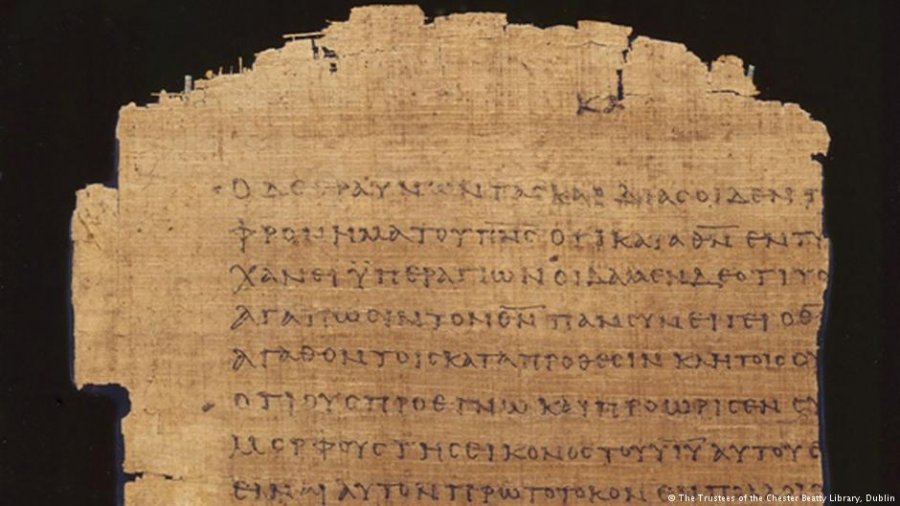 ΚΑ
Ο ΔΕ ΕΡΑΥΝΩΝ ΤΑϹ ΚΑΡΔΙΑϹ ΟΙΔΕΝ Τ
ΦΡΟΝΗΜΑ ΤΟΥ Π̅Ν̅Ϲ̅ ΟΤΙ ΚΑΤΑ Θ̅Ν̅ ΕΝΤΥ
ΧΑΝΕΙ ΫΠΕΡ ΑΓΙΩΝ ΟΙΔΑΜΕΝ ΔΕ ΟΤΙ ΤΟ
ΑΓΑΠΩϹΙΝ ΤΟΝ Θ̅Ν̅ ΠΑΝ ϹΥΝΕΡΓΕΙ Ο Θ̅
ΑΓΑΘΟΝ ΤΟΙϹ ΚΑΤΑ ΠΡΟΘΕϹΙΝ ΚΛΗΤΟΙϹ ΟΥ
ΟΤΙ ΟΥϹ ΠΡΟΕΓΝΩ ΚΑΙ ΠΡΟΩΡΙϹΕΝ ϹΥ
ΜΟΡΦΟΥϹ ΤΗϹ ΕΙΚΟΝΟϹ ΤΟΥ Υ̅Ι̅Υ̅ ΑΥΤΟΥ Ε
ΕΙΝΑΙ ΑΥΤΟΝ ΠΡΩΤΟΤΟΚΟΝ ΕΝ ΠΟΛΛΟΙϹ
© The Trustees of the Chester Beatty Library, Dublin